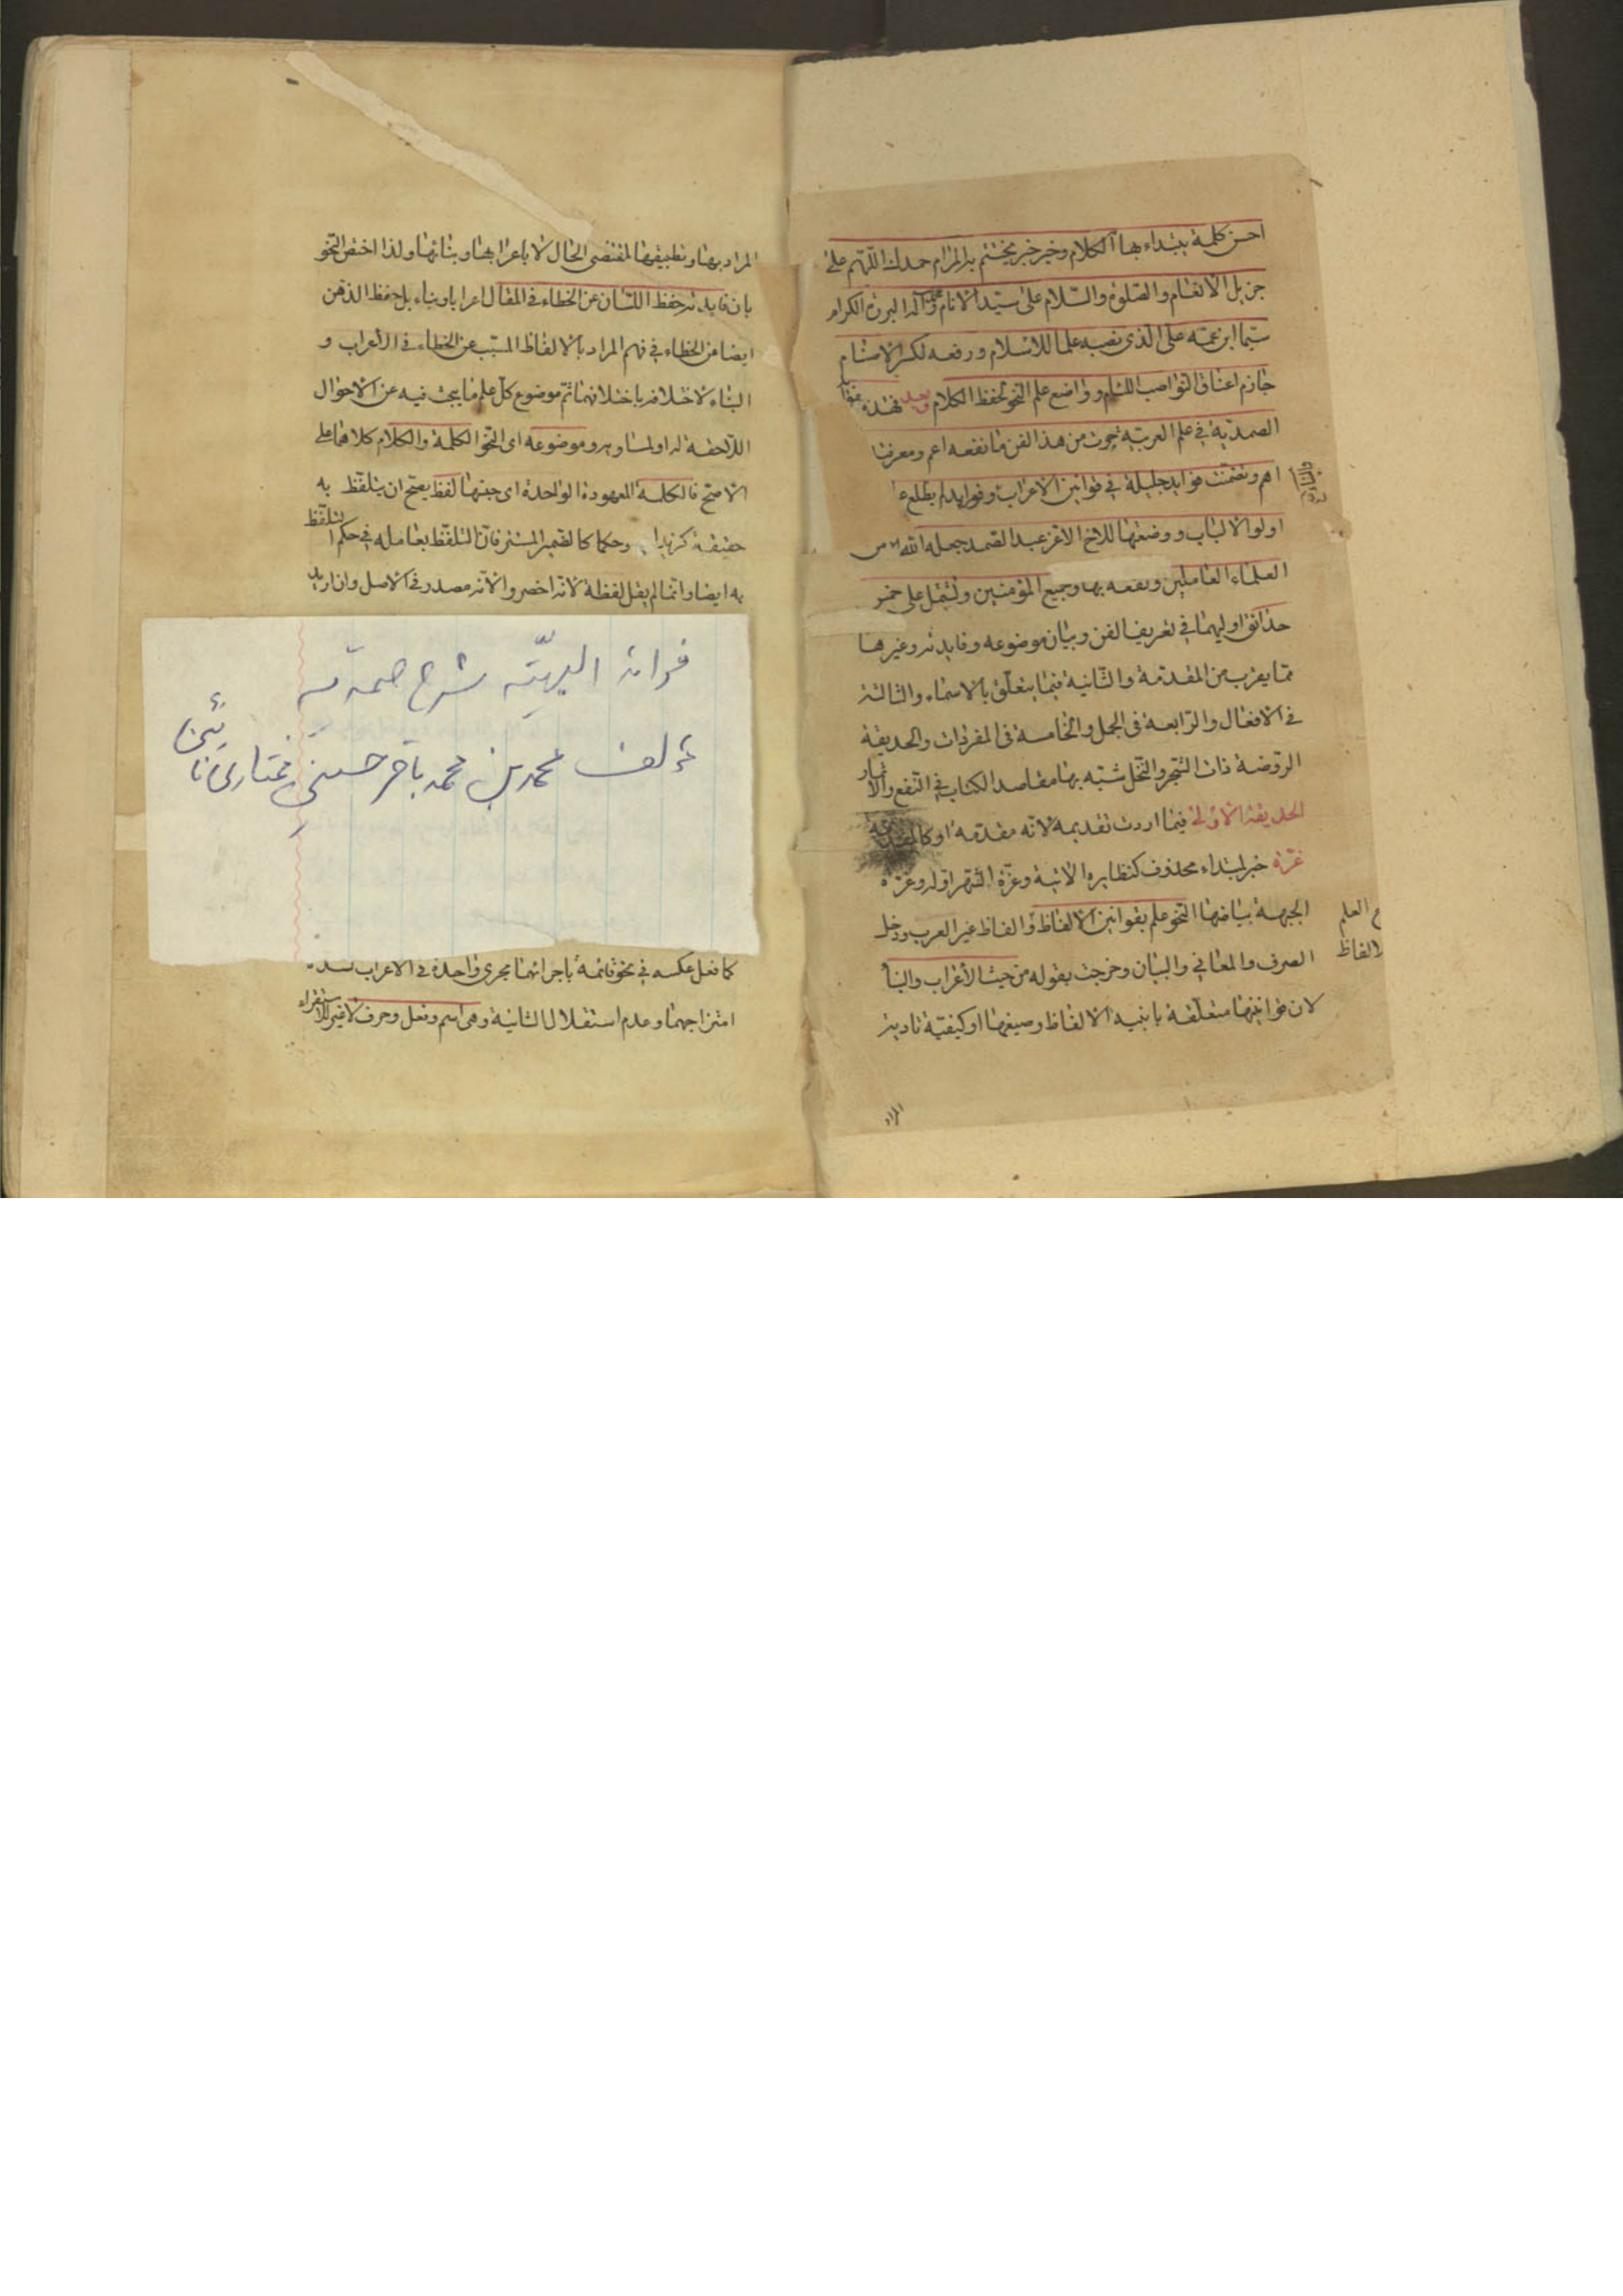 احسن كلمة يبتداء بها الكلام وخير خبر يختتم به المرام حمدك اللهم على
جزيل الانعام والصلوة والسلام على سيد الانام محمد وآله البررة الكرام
سيما ابن عمه على الذى نصبه علما للاسلام ورفعه لكسر الاصنام
جازم اعناق النواصب اللئام وواضع علم النحو لحفظ الكلام وبعد فهذه
الصمدية في علم العربية حوت من هذا الفن ما نفعه اعم ومعرفته
اهم وتضمنت فوايد جليلة في قوانين الاعراب وفرايد لم يطلع ع
اولوا الالباب ووضعتها للاخ الاعز عبد الصمد جعله الله من
العلماء العاملين ونفعه بها وجميع المؤمنين وتشتمل على خمس
حدائق اوليهما في تعريف الفن وبيان موضوعه وفايدته وغيرها
مما يقرب من المقدمة والثانية فيما يتعلق بالاسماء والثالثة
في الافعال والرابعة في الجمل والخامسة في المفردات والحديقة
الروضة ذات الشجر والنخل شبه بها مقاصد الكتاب في النفع والاثمار
الحديقة الاولى فيما اردت تقديمه لانه مقدمة او كالمقدمة
غرة خبر لمبتداء محذوف كنظايره الاتية وغرة الشهر اوله وغرة
الجبهة بياضها النحو علم بقوانين الالفاظ والفاظ غير العرب ودخل
العلم
الالفاظ
الصرف والمعاني والبيان وخرجت بقوله من حيث الأعراب والبنا
لان قوانينها متعلقة بابنية الالفاظ وصيغها او كيفية تادية
المراد
المراد بها وتطبيقها لمقتضى الحال لا باعرابها وبنائها ولذا اختص النحو
بان فايدته حفظ اللسان عن الخطاء في المقال اعرابا وبناء بل حفظ الذهن
ايضا من الخطاء في فهم المراد بالالفاظ المسبب عن الخطاء في الأعراب و
البناء لاختلافه باختلافهما ثم موضوع كل علم ما يبحث فيه عن الاحوال
اللاحقة له او لمساويه وموضوعه اى النحو الكلمة والكلام كلاهما على
الاصح فالكلمة المعهودة الواحدة اى جنسها لفظ يصح ان يتلفظ به
حقيقة كزيد او حكما كالضمير المستتر فان التلفظ بعامله في حكم التلفظ
به ايضا وانما لم يقل لفظة لانه اخصر والانه مصدر في الاصل وان اريد
فوائد البهيّه شرح صمديه
مؤلف محمد بن محمد باقر حسيني مختارى نائينى
كما فعل عكسه في نحو قائمة باجرائهما مجرى واحدة في الاعراب لشدة
امتزاجهما وعدم استقلال الثانية وهى اسم وفعل وحرف لا غير للاستقراء